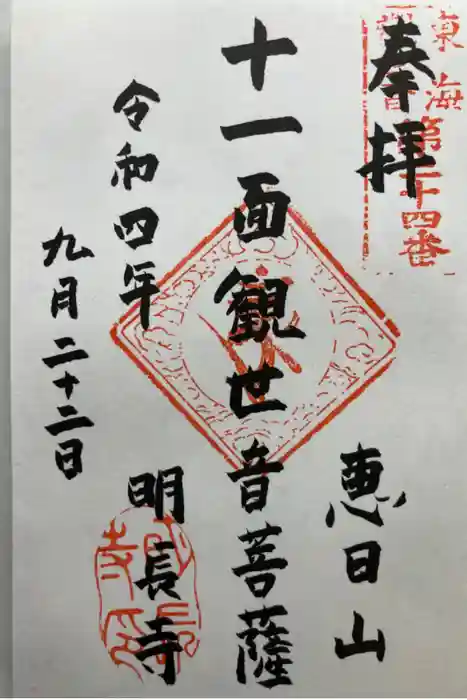 奉拝
東海
第二十四番
恵日山
十一面観世音菩薩
令和四年
九月二十二日
明長寺